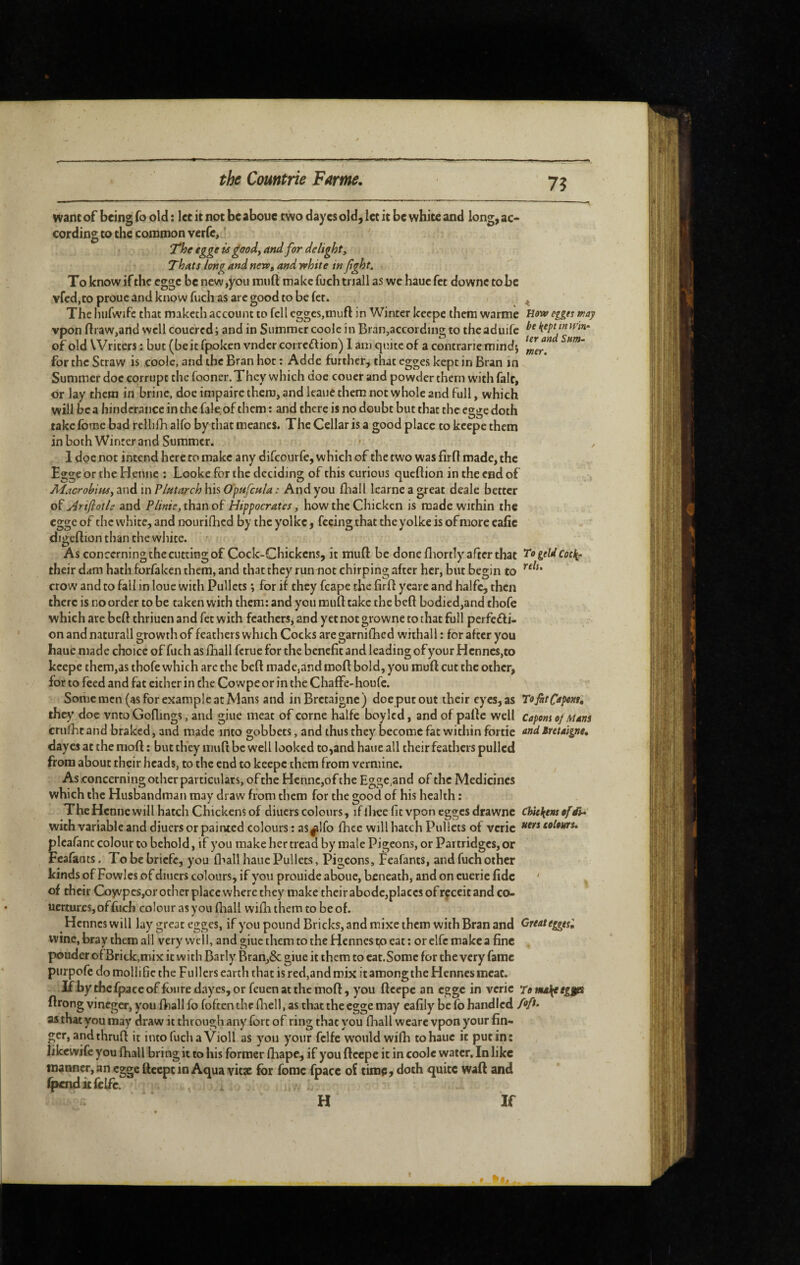 the Countrie Farme. 73
want of being ſo old: let it not be aboue two dayes old, let it be white and long, ac-
cording to the common verſe,
The egge is good, and for delight,
Thats long and new, and white in ſight.
To know if the egge be new, you muſt make ſuch triall as we haue ſet downe to be
vſed, to proue and know ſuch as are good to be ſet.
The huſwife that maketh account to ſell egges, muſt in Winter keepe them warme
How egges may
vpon ſtraw, and well couered; and in Summer coole in Bran, according to the aduiſe
be kept in Win-
of old VVriters: but (be it ſpoken vnder correction) I am quite of a contrarie mind;
ter and Sum-
for the Straw is coole, and the Bran hot: Adde further, that egges kept in Bran in
mer.
Summer doe corrupt the ſooner. They which doe couer and powder them with ſalt,
or lay them in brine, doe impaire them, and leaue them not whole and full, which
will be a hinderance in the ſale of them: and there is no doubt but that the egge doth
take ſome bad relliſh alſo by that meanes. The Cellar is a good place to keepe them
in both Winter and Summer.
I doe not intend here to make any diſcourſe, which of the two was firſt made, the
Egge or the Henne: Looke for the deciding of this curious queſtion in the end of
Macrobius, and in Plutarch his Opuſcula: And you ſhall learne a great deale better
of Ariſtotle and Plinie, than of Hippocrates, how the Chicken is made within the
egge of the white, and nouriſhed by the yolke, ſeeing that the yolke is of more eaſie
digeſtion than the white.
As concerning the cutting of Cock-Chickens, it muſt be done ſhortly after that
To geld Cock-
their dam hath forſaken them, and that they run not chirping after her, but begin to
rels.
crow and to fall in loue with Pullets; for if they ſcape the firſt yeare and halfe, then
there is no order to be taken with them: and you muſt take the beſt bodied, and thoſe
which are beſt thriuen and ſet with feathers, and yet not growne to that full perfecti-
on and naturall growth of feathers which Cocks are garniſhed withall: for after you
haue made choice of ſuch as ſhall ſerue for the benefit and leading of your Hennes, to
keepe them, as thoſe which are the beſt made, and moſt bold, you muſt cut the other,
for to feed and fat either in the Cowpe or in the Chaffe-houſe.
Some men (as for example at Mans and in Bretaigne) doe put out their eyes, as
To fat Capons,
they doe vnto Goſlings, and giue meat of corne halfe boyled, and of paſte well
Capons of Mans
cruſht and braked, and made into gobbets, and thus they become fat within fortie
and Bretaigne.
dayes at the moſt: but they muſt be well looked to, and haue all their feathers pulled
from about their heads, to the end to keepe them from vermine.
As concerning other particulars, of the Henne, of the Egge, and of the Medicines
which the Husbandman may draw from them for the good of his health:
The Henne will hatch Chickens of diuers colours, if ſhee ſit vpon egges drawne
Chickens of di-
with variable and diuers or painted colours: as alſo ſhee will hatch Pullets of verie
uers colours.
pleaſant colour to behold, if you make her tread by male Pigeons, or Partridges, or
Feaſants. To be briefe, you ſhall haue Pullets, Pigeons, Feaſants, and ſuch other
kinds of Fowles of diuers colours, if you prouide aboue, beneath, and on euerie ſide
of their Cowpes, or other place where they make their abode, places of receit and co-
uertures, of ſuch colour as you ſhall wiſh them to be of.
Hennes will lay great egges, if you pound Bricks, and mixe them with Bran and
Great egges.
wine, bray them all very well, and giue them to the Hennes to eat: or elſe make a fine
pouder of Brick, mix it with Barly Bran, & giue it them to eat. Some for the very ſame
purpoſe do mollifie the Fullers earth that is red, and mix it among the Hennes meat.
If by the ſpace of foure dayes, or ſeuen at the moſt, you ſteepe an egge in verie
To make egges
ſtrong vineger, you ſhall ſo ſoften the ſhell, as that the egge may eaſily be ſo handled
ſoft.
as that you may draw it through any ſort of ring that you ſhall weare vpon your fin-
ger, and thruſt it into ſuch a Violl as you your ſelfe would wiſh to haue it put in:
likewiſe you ſhall bring it to his former ſhape, if you ſteepe it in coole water. In like
manner, an egge ſteept in Aqua vitæ for ſome ſpace of time, doth quite waſt and
ſpend it ſelfe.
H If